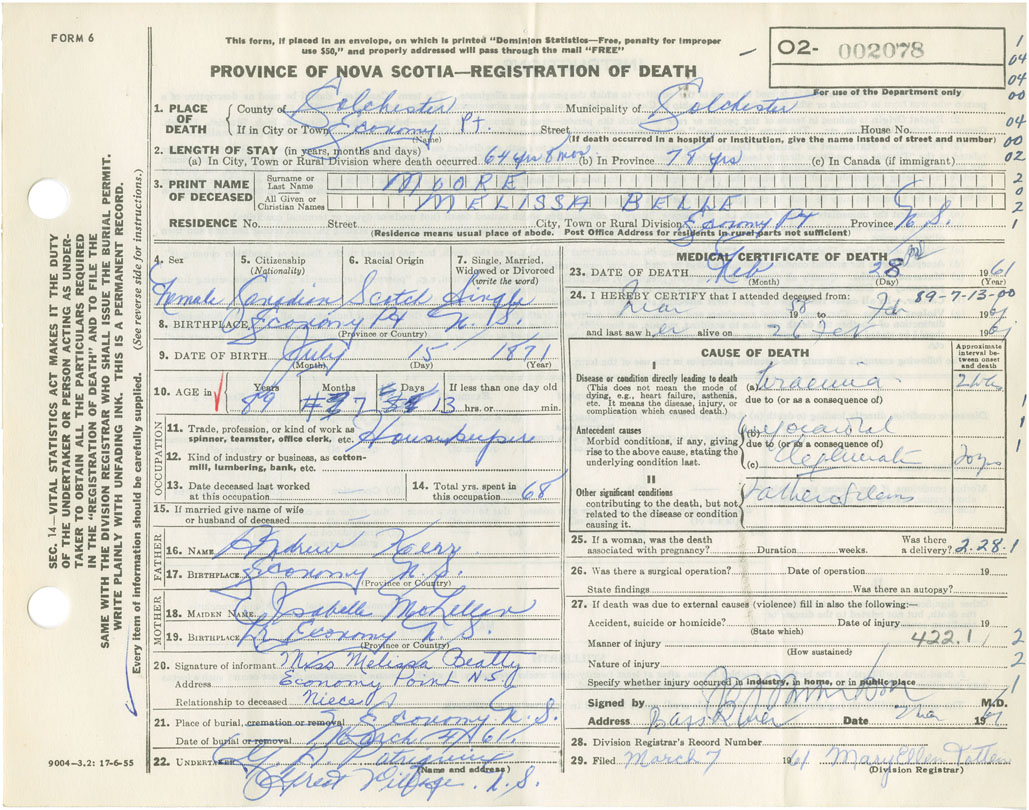 FORM 6
This form, if placed in an envelope, on which is printed "Dominion Statistics—Free, penalty for improper
use $50," and properly addressed will pass through the mail "FREE"
02- 002078
For use of the Department only
PROVINCE OF NOVA SCOTIA—REGISTRATION OF DEATH
1. PLACE OF DEATH County of Colchester Municipality of Colchester
If in City or Town Economy Pt. Street House No.
(Name) (If death occurred in a hospital or institution, give the name instead of street and number)
2. LENGTH OF STAY (in years, months and days)
(a) In City, Town or Rural Division where death occurred 64 yrs 8 mos (b) In Province 78 yrs (c) In Canada (if immigrant)
3. PRINT NAME OF DECEASED Surname or Last Name MOORE
All Given or Christian Names MELISSA BELLE
RESIDENCE No. Street City, Town or Rural Division Economy Pt Province N.S.
(Residence means usual place of abode. Post Office Address for residents in rural parts not sufficient)
4. Sex Female
5. Citizenship (Nationality) Canadian
6. Racial Origin Scotch
7. Single, Married, Widowed or Divorced (write the word) Single
8. BIRTHPLACE Economy Pt N.S.
(Province or Country)
9. DATE OF BIRTH July 15 1871
(Month) (Day) (Year)
10. AGE in Years Months Days If less than one day old
89 7 13 hrs. or min.
OCCUPATION
11. Trade, profession or kind of work as spinner, teamster, office clerk, etc.
12. Kind of industry or business, as cotton-mill, lumbering, bank, etc.
13. Date deceased last worked at this occupation
14. Total yrs. spent in this occupation 68
15. If married give name of wife or husband of deceased
FATHER
16. NAME Andrew
17. BIRTHPLACE Economy N.S.
(Province or Country)
MOTHER
18. MAIDEN NAME Isabelle McLellan
19. BIRTHPLACE Economy N.S.
(Province or Country)
20. Signature of informant Miss Melissa Beatty
Address Economy Point N.S.
Relationship to deceased Niece
21. Place of burial, cremation or removal Economy N.S.
Date of burial or removal March 2/61.
22. UNDERTAKER
(Name and address)
Village N.S.
9004-3.2: 17-6-55
SEC. 14—VITAL STATISTICS ACT MAKES IT THE DUTY
OF THE UNDERTAKER OR PERSON ACTING AS UNDER-
TAKER TO OBTAIN ALL THE PARTICULARS REQUIRED
IN THE "REGISTRATION OF DEATH" AND TO FILE THE
SAME WITH THE DIVISION REGISTRAR WHO SHALL ISSUE THE BURIAL PERMIT.
WRITE PLAINLY WITH UNFADING INK. THIS IS A PERMANENT RECORD.
Every item of information should be carefully supplied. (See reverse side for instructions.)
MEDICAL CERTIFICATE OF DEATH
23. DATE OF DEATH Feb 28 1961
(Month) (Day) (Year)
24. I HEREBY CERTIFY that I attended deceased from: 89-7-13-00
and last saw her alive on 26 Feb 1961
CAUSE OF DEATH
Approximate interval between onset and death
I
Disease or condition directly leading to death
(This does not mean the mode of dying, e.g., heart failure, asthenia, etc. It means the disease, injury, or complication which caused death.)
(a) Uraemia
due to (or as a consequence of)
Antecedent causes
Morbid conditions, if any, giving rise to the above cause, stating the underlying condition last.
(b) Myocardial
due to (or as a consequence of)
(c)
II
Other significant conditions
contributing to the death, but not related to the disease or condition causing it.
25. If a woman, was the death associated with pregnancy? Duration weeks. Was there a delivery? 2.28.1
26. Was there a surgical operation? Date of operation 19
State findings Was there an autopsy?
27. If death was due to external causes (violence) fill in also the following:—
Accident, suicide or homicide? Date of injury 19
(State which)
Manner of injury 422.1
(How sustained)
Nature of injury
Specify whether injury occurred in industry, in home, or in public place
Signed by M.D.
Address Bass River Date Mar 1961
28. Division Registrar's Record Number
29. Filed March 7 1961 Mary Ellen
(Division Registrar)
1
04
04
00
04
00
02
2
0
2
1
1
1
1
2
2